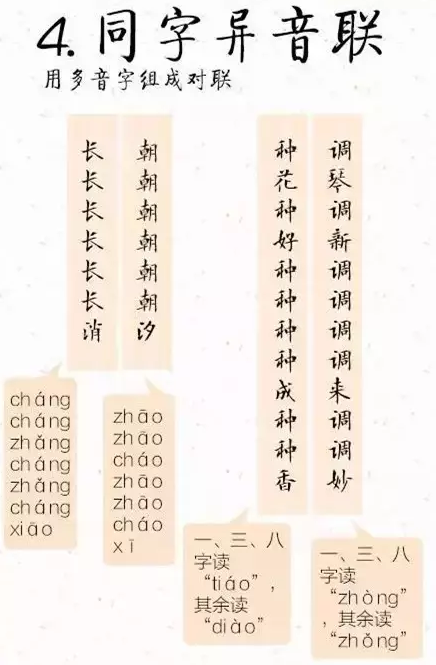 4. 同字异音联
用多音字组成对联
朝朝朝朝朝朝汐
长长长长长长消
调琴调新调调调调来调调妙
种花种好种种种种成种种香
cháng
cháng
zhǎng
cháng
zhǎng
cháng
xiāo
zhāo
zhāo
cháo
zhāo
zhāo
cháo
xī
一、三、八
字读
“tiáo”，
其余读
“diào”
一、三、八
字读
“zhòng”
，其余读
“zhǒng”